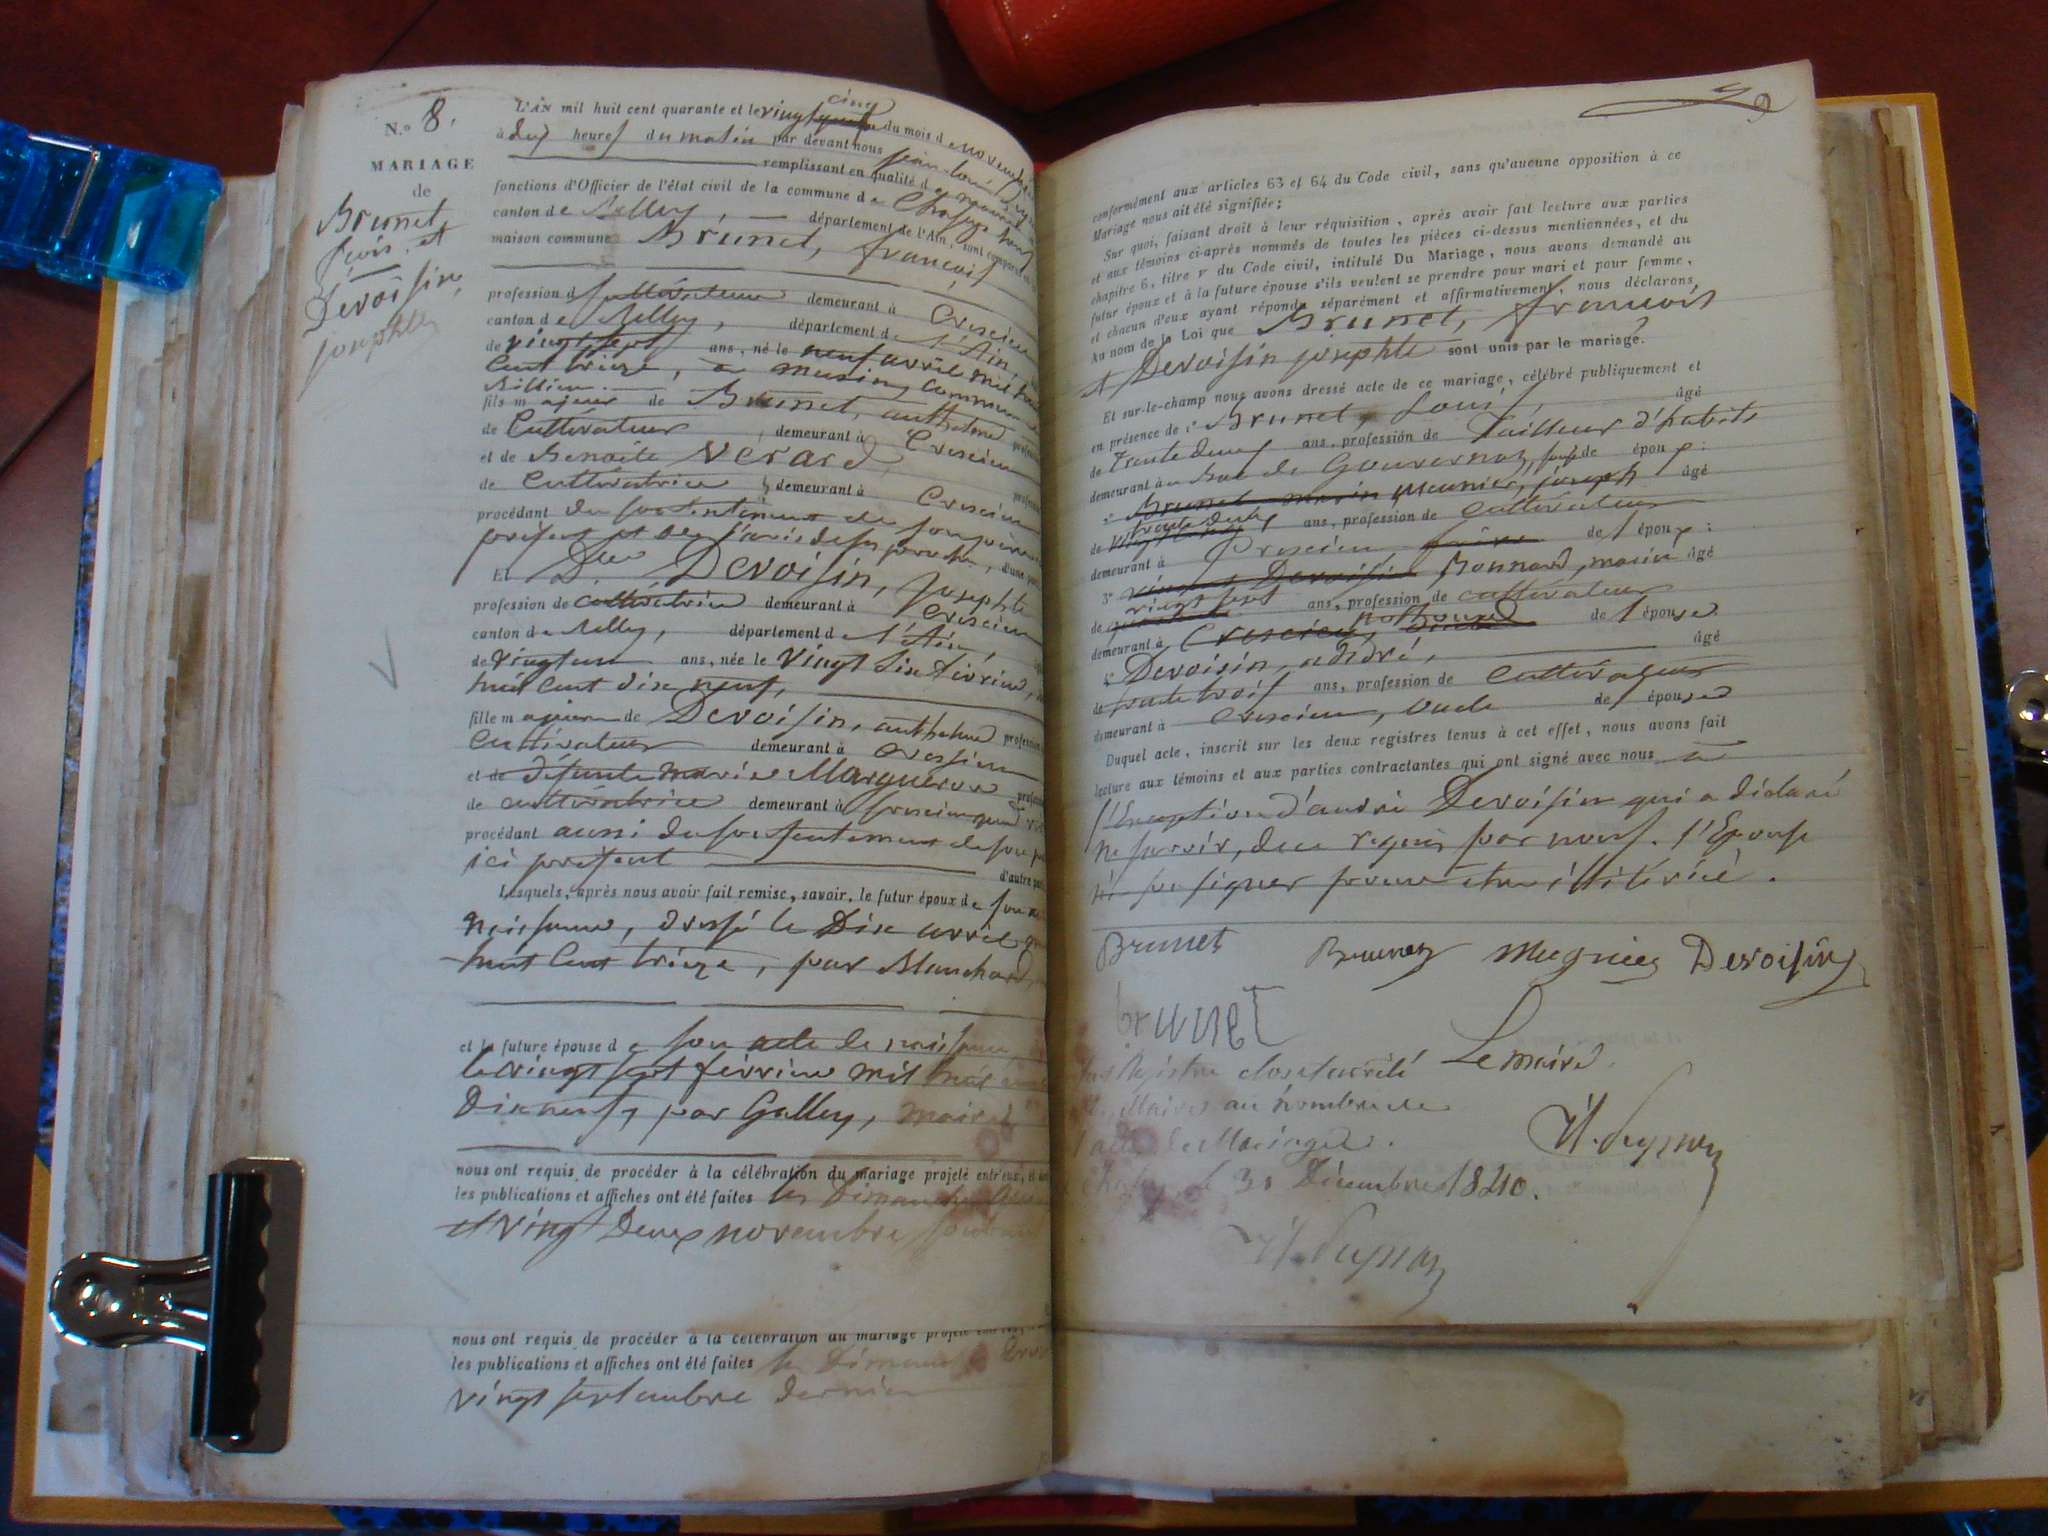 N.º 8.
MARIAGE
de
Brunet
et
Devoisin,
Josephte
L'AN mil huit cent quarante et le vingt cinq du mois de novembre
à dix heures du matin par devant nous Jean Louis
remplissant en qualité de
fonctions d'Officier de l'état civil de la commune de
canton de Belley, département de l'Ain, sont comparus
maison commune Brunet, françois
profession de cultivateur demeurant à Cressieu
canton de Belley, département de l'Ain,
de vingt sept ans, né le neuf avril mil huit
cent treize, a musin, commune
fils majeur de Brunet, anthelme
de Cultivateur, demeurant à Cressieu
et de Benoite Verard
de cultivatrice demeurant à Cressieu
procédant du consentement de son père
présent d'une part
Et Dlle Devoisin, Josephte
profession de cultivatrice demeurant à Cressieu
canton de Belley, département de l'Ain,
de vingt un ans, née le vingt six février,
huit cent dix neuf,
fille majeure de Devoisin, anthelme profession
cultivateur demeurant à Cressieu
et de défunte marie Marguerou
de cultivatrice demeurant à
procédant aussi du consentement de son
ici présent d'autre part
Lesquels, après nous avoir fait remise, savoir, le futur époux de son
naissance, dressé le Dix avril
huit Cent treize, par Blanchard,
et la future épouse de son acte de naissance
le vingt sept février mil huit cent
Dix neuf, par Gallay, maire
nous ont requis de procéder à la célébration du mariage projeté entr'eux, et dont
les publications et affiches ont été faites les Dimanches
et vingt Deux novembre
nous ont requis de procéder à la célébration du mariage projeté
les publications et affiches ont été faites les Dimanches
vingt septembre dernier
9
conformément aux articles 63 et 64 du Code civil, sans qu'aucune opposition à ce
Mariage nous ait été signifiée;
Sur quoi, faisant droit à leur réquisition, après avoir fait lecture aux parties
et aux témoins ci-après nommés de toutes les pièces ci-dessus mentionnées, et du
chapitre 6, titre v du Code civil, intitulé Du Mariage, nous avons demandé au
futur époux et à la future épouse s'ils veulent se prendre pour mari et pour femme,
et chacun d'eux ayant répondu séparément et affirmativement, nous déclarons
Au nom de la Loi que Brunet, françois
et Devoisin josephte sont unis par le mariage.
Et sur-le-champ nous avons dressé acte de ce mariage, célébré publiquement et
en présence de 1º Brunet, Louis, âgé
de trente deux ans, profession de Tailleur d'habits
demeurant à de époux;
2º Brunet marin Meunier, joseph âgé
de trente deux ans, profession de cultivateur
demeurant à Cressieu de l'époux;
3º Devoisin Bonnard, marin âgé
de vingt sept ans, profession de cultivateur
demeurant à Cressieu, de l'épouse
4º Devoisin, andré, âgé
de trente trois ans, profession de cultivateur
demeurant à Cressieu, oncle de l'épouse
Duquel acte, inscrit sur les deux registres tenus à cet effet, nous avons fait
lecture aux témoins et aux parties contractantes qui ont signé avec nous à
l'Exception d'andré Devoisin qui a déclaré
ne savoir, de ce requis par nous. l'Epouse
n'a pu signer pour être illitérée.
Brunet Brunet Mugnier Devoisin
brunet
Le maire.
registre clos et arrêté
Maire au nombre de
actes de Mariages.
le 31 Décembre 1840.